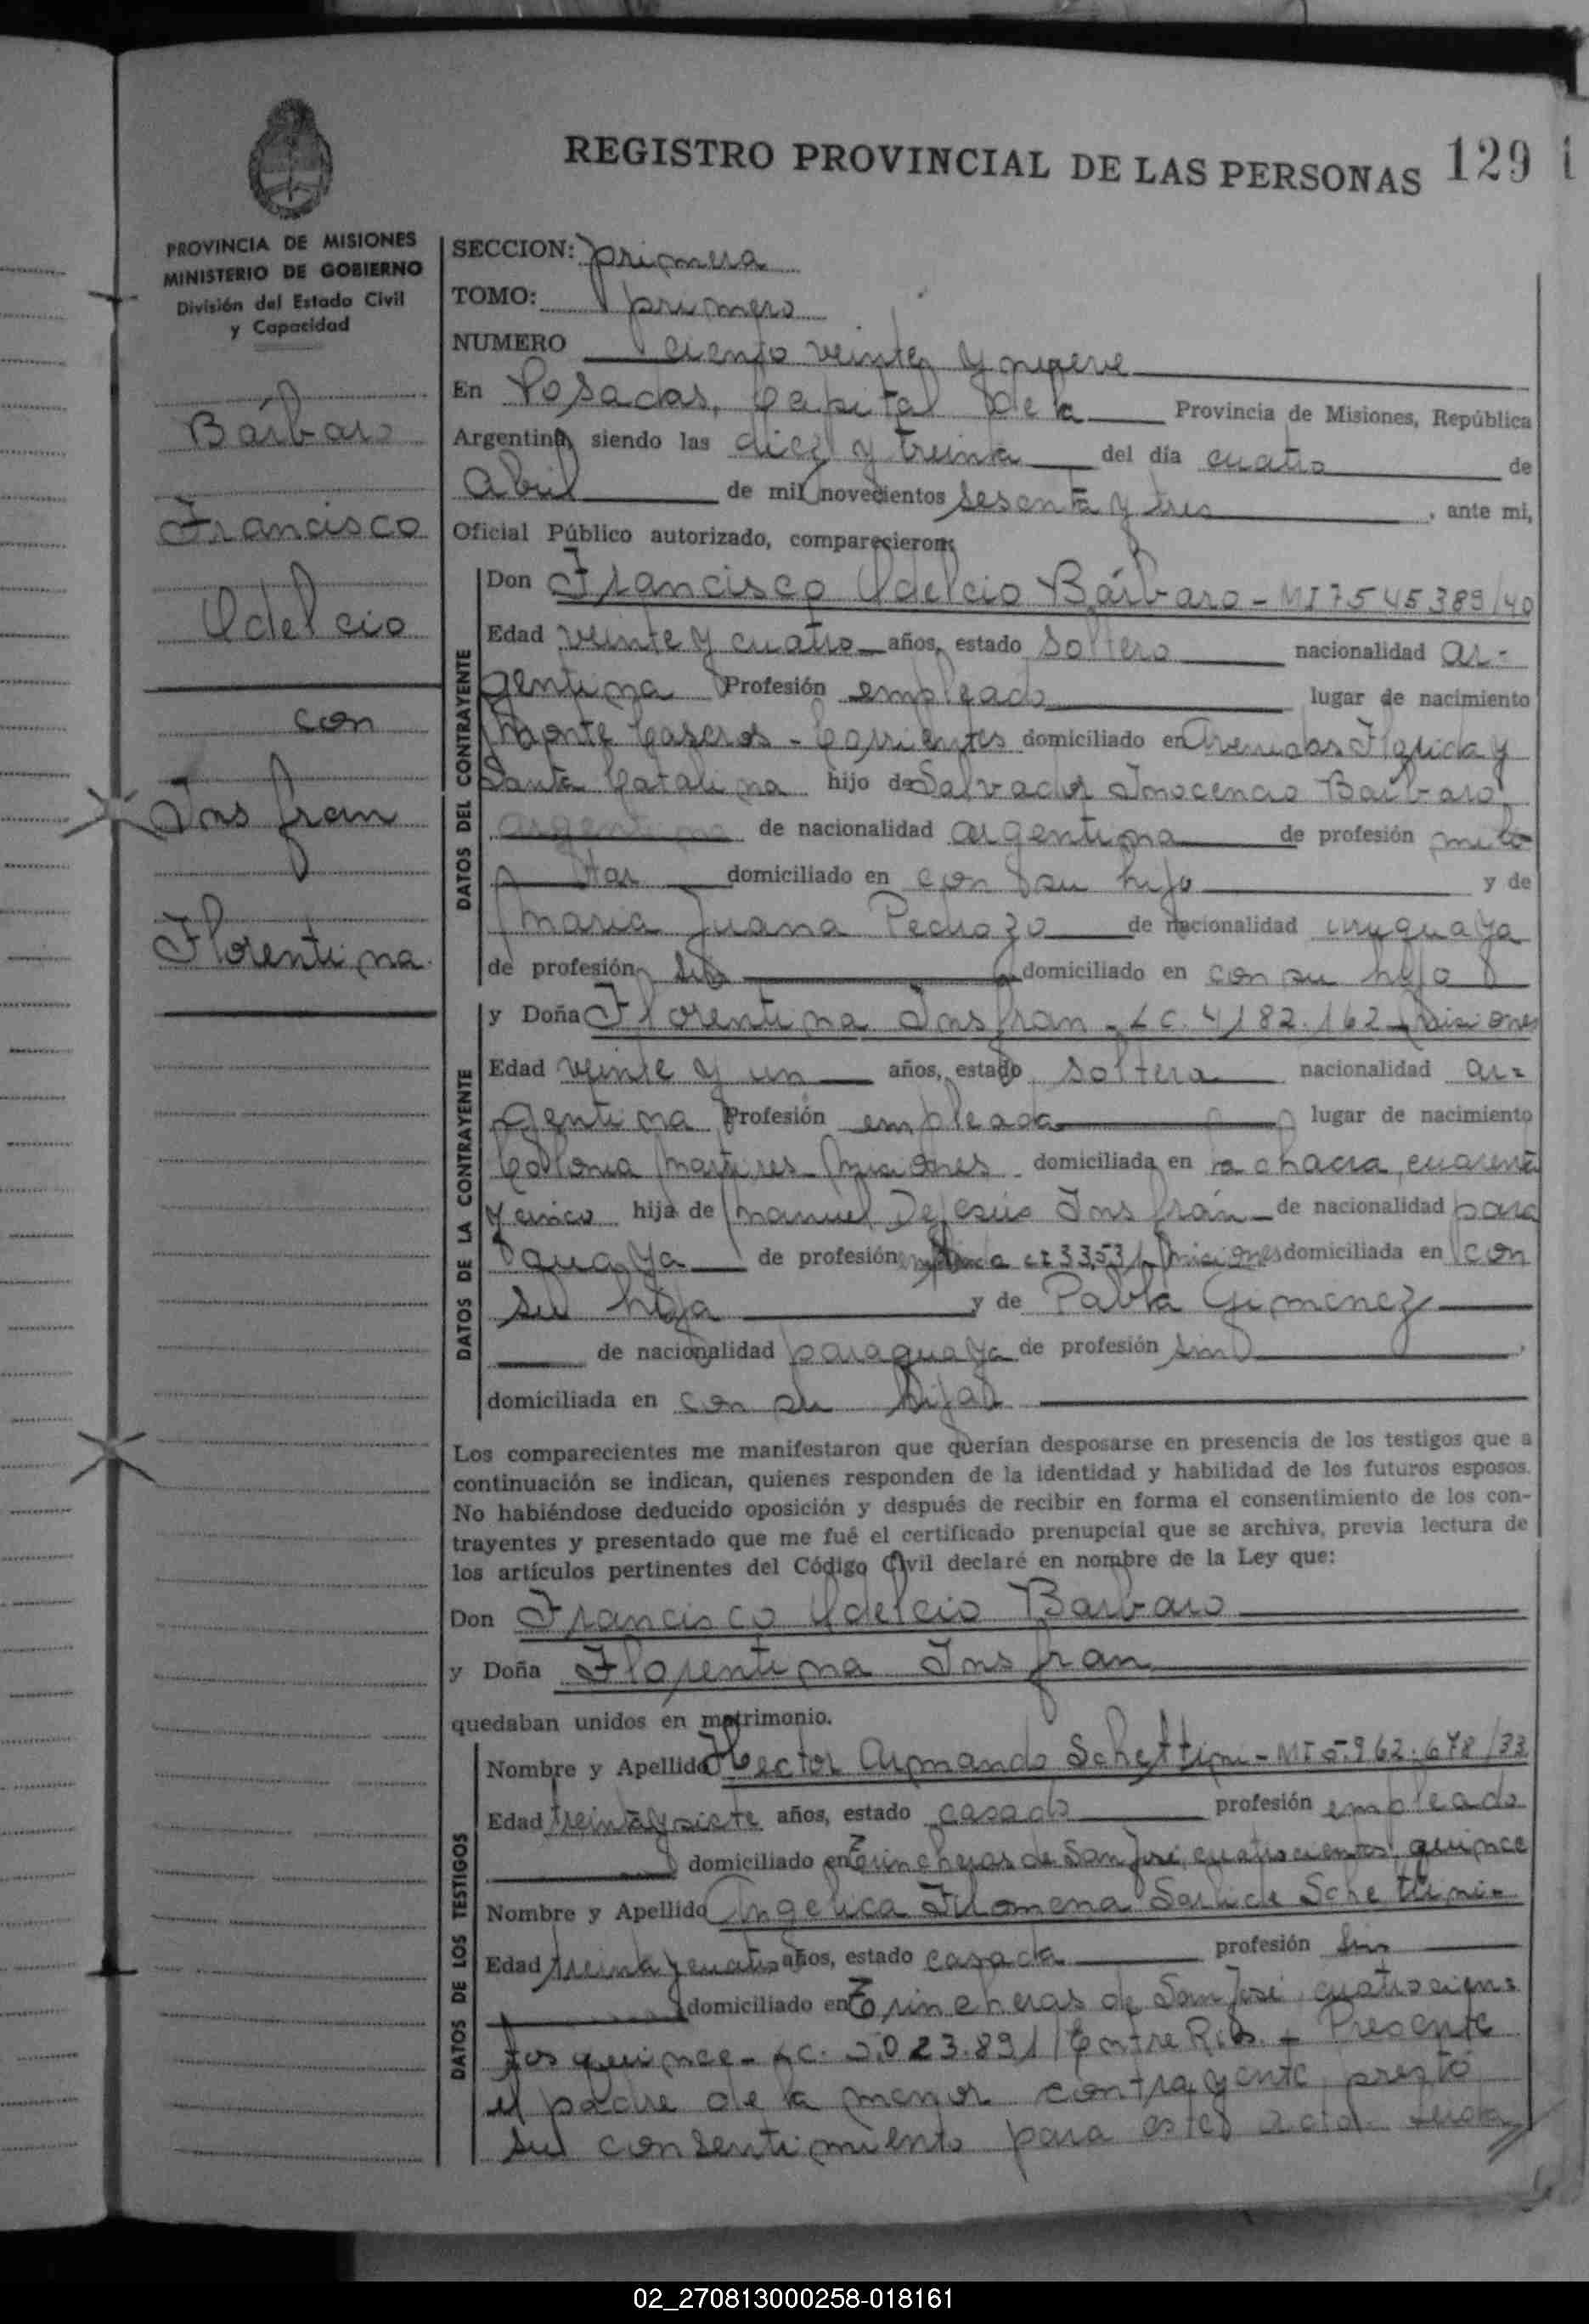 REGISTRO PROVINCIAL DE LAS PERSONAS 129
PROVINCIA DE MISIONES
MINISTERIO DE GOBIERNO
División del Estado Civil
y Capacidad
Bárbaro
Francisco
Odelcio
con
Insfran
Florentina
SECCION: primera
TOMO: primero
NUMERO ciento veinte y nueve
En Posadas, Capital de la Provincia de Misiones, República
Argentina, siendo las diez y treinta del día cuatro de
Abril de mil novecientos sesenta y tres, ante mi,
Oficial Público autorizado, comparecieron:
DATOS DEL CONTRAYENTE
Don Francisco Odelcio Bárbaro - MI 7545389/40
Edad veinte y cuatro años, estado soltero nacionalidad ar-
gentina Profesión empleado lugar de nacimiento
Monte Caseros - Corrientes domiciliado en Avenidas Zapiola y
Santa Catalina hijo de Salvador Inocencio Bárbaro,
argentina de nacionalidad argentina de profesión mili-
tar domiciliado en con su hijo y de
Maria Juana Pedrozo de nacionalidad uruguaya
de profesión sin domiciliado en con su hijo
DATOS DE LA CONTRAYENTE
y Doña Florentina Insfran - LC. 4182.162 - Misiones
Edad veinte y un años, estado soltera nacionalidad ar-
gentina Profesión empleada lugar de nacimiento
Colonia Martires - Misiones domiciliada en la chacra cuarenta
y cinco hija de Manuel DeJesús Insfrán de nacionalidad para
guaya de profesión Misiones domiciliada en con
su hija y de Pabla Gimenez
de nacionalidad paraguaya de profesión sin
domiciliada en con su hija
Los comparecientes me manifestaron que querían desposarse en presencia de los testigos que a
continuación se indican, quienes responden de la identidad y habilidad de los futuros esposos.
No habiéndose deducido oposición y después de recibir en forma el consentimiento de los con-
trayentes y presentado que me fué el certificado prenupcial que se archiva, previa lectura de
los artículos pertinentes del Código Civil declaré en nombre de la Ley que:
Don Francisco Odelcio Barbaro
y Doña Florentina Insfran
quedaban unidos en matrimonio.
DATOS DE LOS TESTIGOS
Nombre y Apellido Hector Armando Schettini - MI 5.962.678/33
Edad treinta y siete años, estado casado profesión empleado
domiciliado en Trincheras de San José, cuatrocientos quince
Nombre y Apellido Angelica Filomena de Schettini-
Edad treinta y cuatro años, estado casada profesión sin
domiciliado en Trincheras de San José, cuatrocien-
tos quince - LC. 2.023.891/Entre Rios. - Presente
el padre de la menor contrayente, prestó
su consentimiento para este acto.
02_270813000258-018161